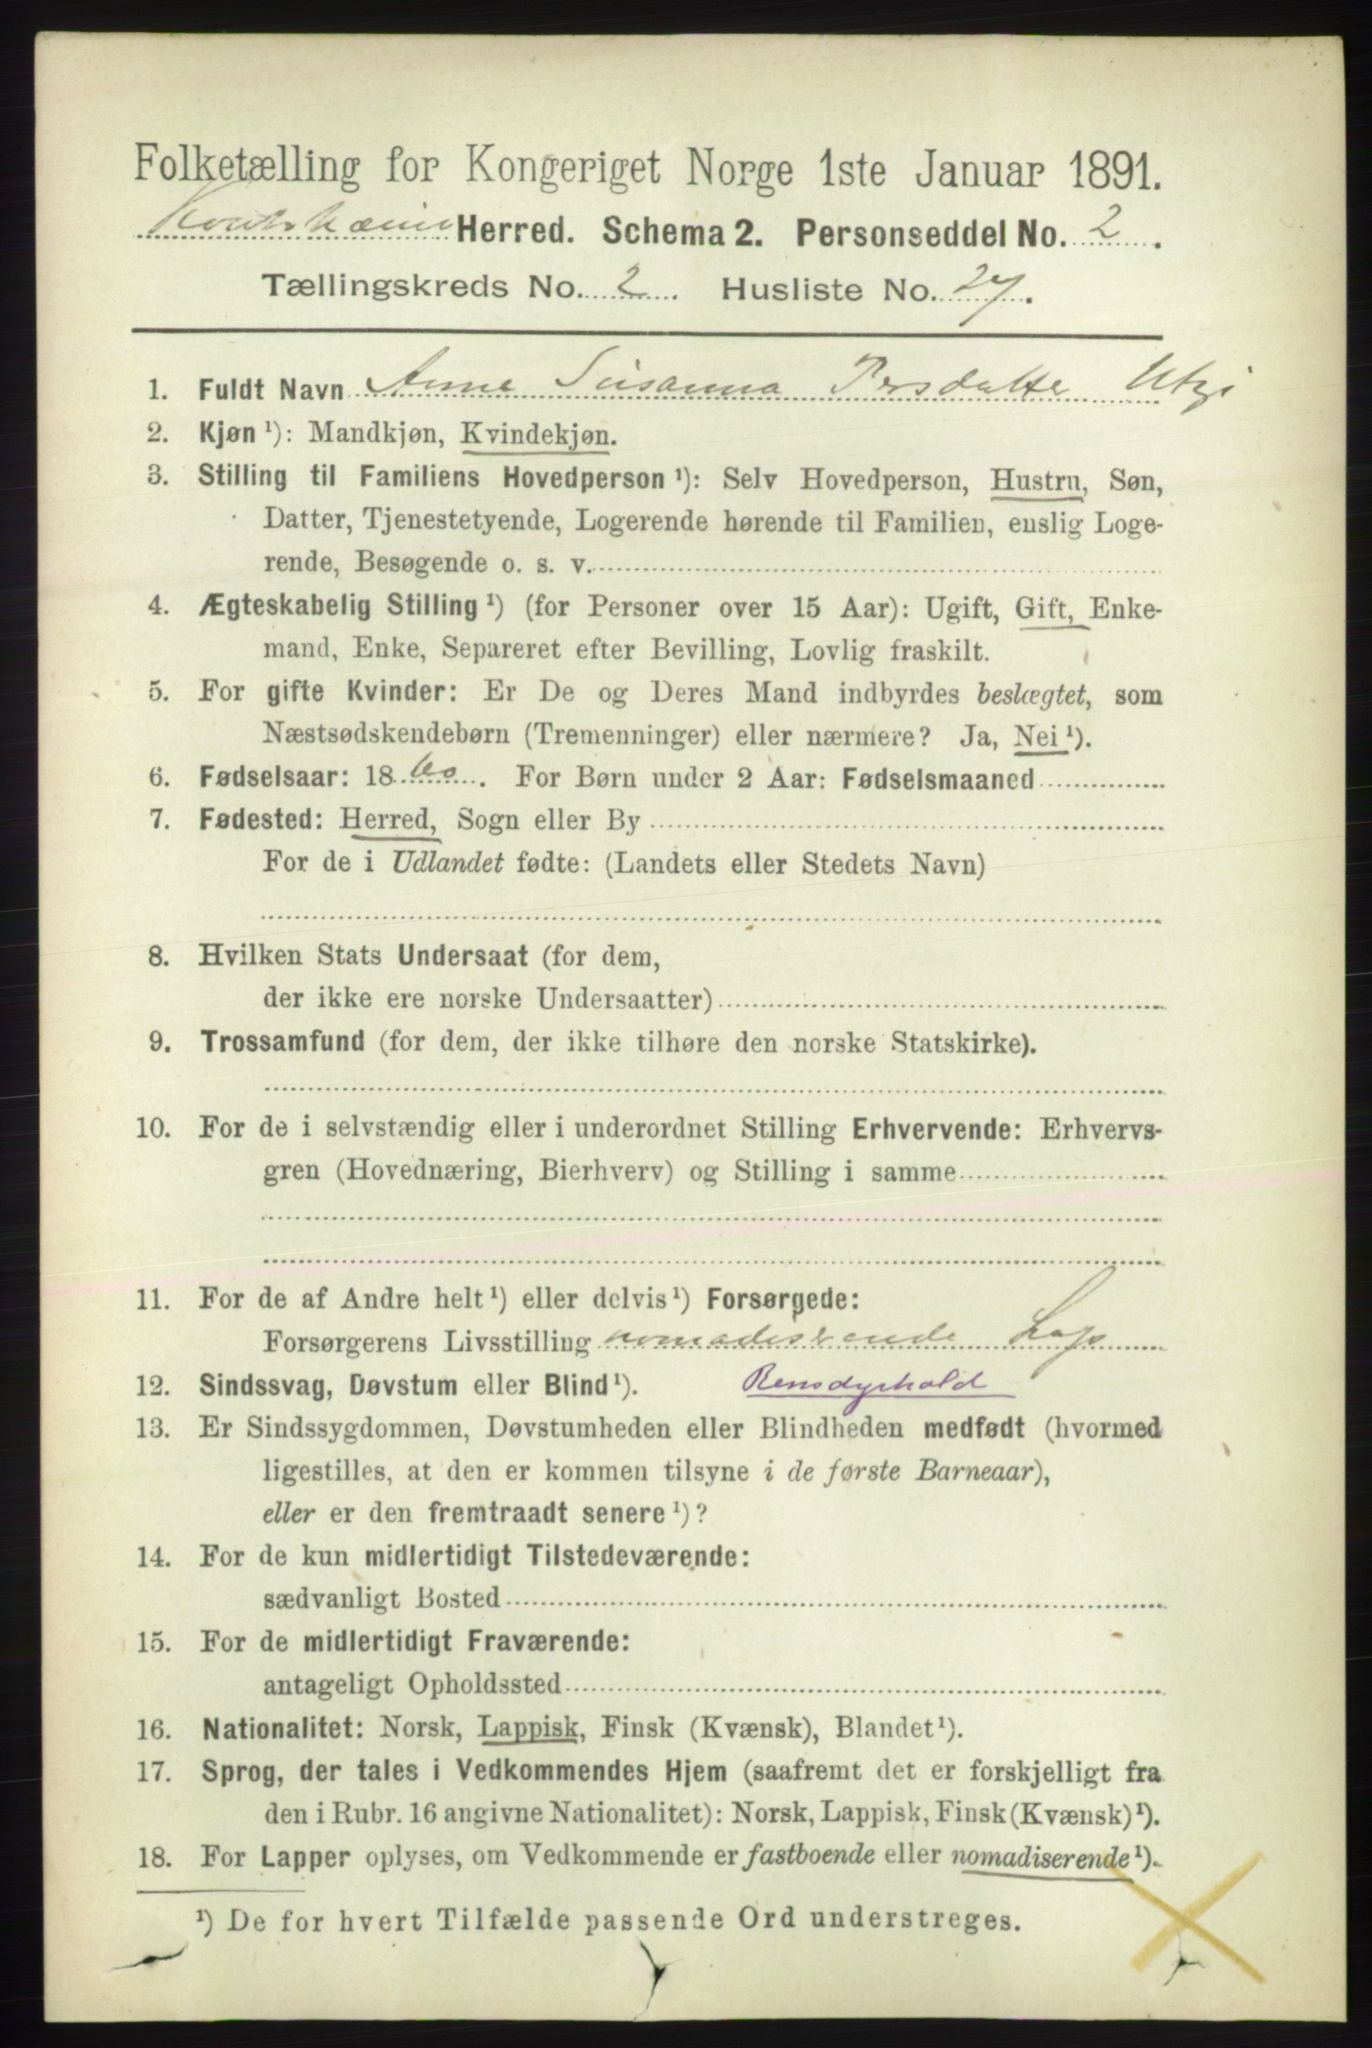 Folketælling for Kongeriget Norge 1ste Januar 1891.
Herred. Schema 2. Personseddel No. 2.
Tællingskreds No. 2. Husliste No. 27.
1. Fuldt Navn Anne Susanna Persdatte Utzi
2. Kjøn ¹): Mandkjøn, Kvindekjøn.
3. Stilling til Familiens Hovedperson ¹): Selv Hovedperson, Hustru, Søn,
Datter, Tjenestetyende, Logerende hørende til Familien, enslig Loge-
rende, Besøgende o. s. v.
4. Ægteskabelig Stilling ¹) (for Personer over 15 Aar): Ugift, Gift, Enke-
mand, Enke, Separeret efter Bevilling, Lovlig fraskilt.
5. For gifte Kvinder: Er De og Deres Mand indbyrdes beslægtet, som
Næstsødskendebørn (Tremenninger) eller nærmere? Ja, Nei ¹).
6. Fødselsaar: 1860. For Børn under 2 Aar: Fødselsmaaned
7. Fødested: Herred, Sogn eller By
For de i Udlandet fødte: (Landets eller Stedets Navn)
8. Hvilken Stats Undersaat (for dem,
der ikke ere norske Undersaatter)
9. Trossamfund (for dem, der ikke tilhøre den norske Statskirke).
10. For de i selvstændig eller i underordnet Stilling Erhvervende: Erhvervs-
gren (Hovednæring, Bierhverv) og Stilling i samme
11. For de af Andre helt ¹) eller delvis ¹) Forsørgede:
Forsørgerens Livsstilling nomadiserende Lap
12. Sindssvag, Døvstum eller Blind ¹). Rensdyrhold
13. Er Sindssygdommen, Døvstumheden eller Blindheden medfødt (hvormed
ligestilles, at den er kommen tilsyne i de første Barneaar),
eller er den fremtraadt senere ¹)?
14. For de kun midlertidigt Tilstedeværende:
sædvanligt Bosted
15. For de midlertidigt Fraværende:
antageligt Opholdssted
16. Nationalitet: Norsk, Lappisk, Finsk (Kvænsk), Blandet ¹).
17. Sprog, der tales i Vedkommendes Hjem (saafremt det er forskjelligt fra
den i Rubr. 16 angivne Nationalitet): Norsk, Lappisk, Finsk (Kvænsk) ¹).
18. For Lapper oplyses, om Vedkommende er fastboende eller nomadiserende ¹).
¹) De for hvert Tilfælde passende Ord understreges.